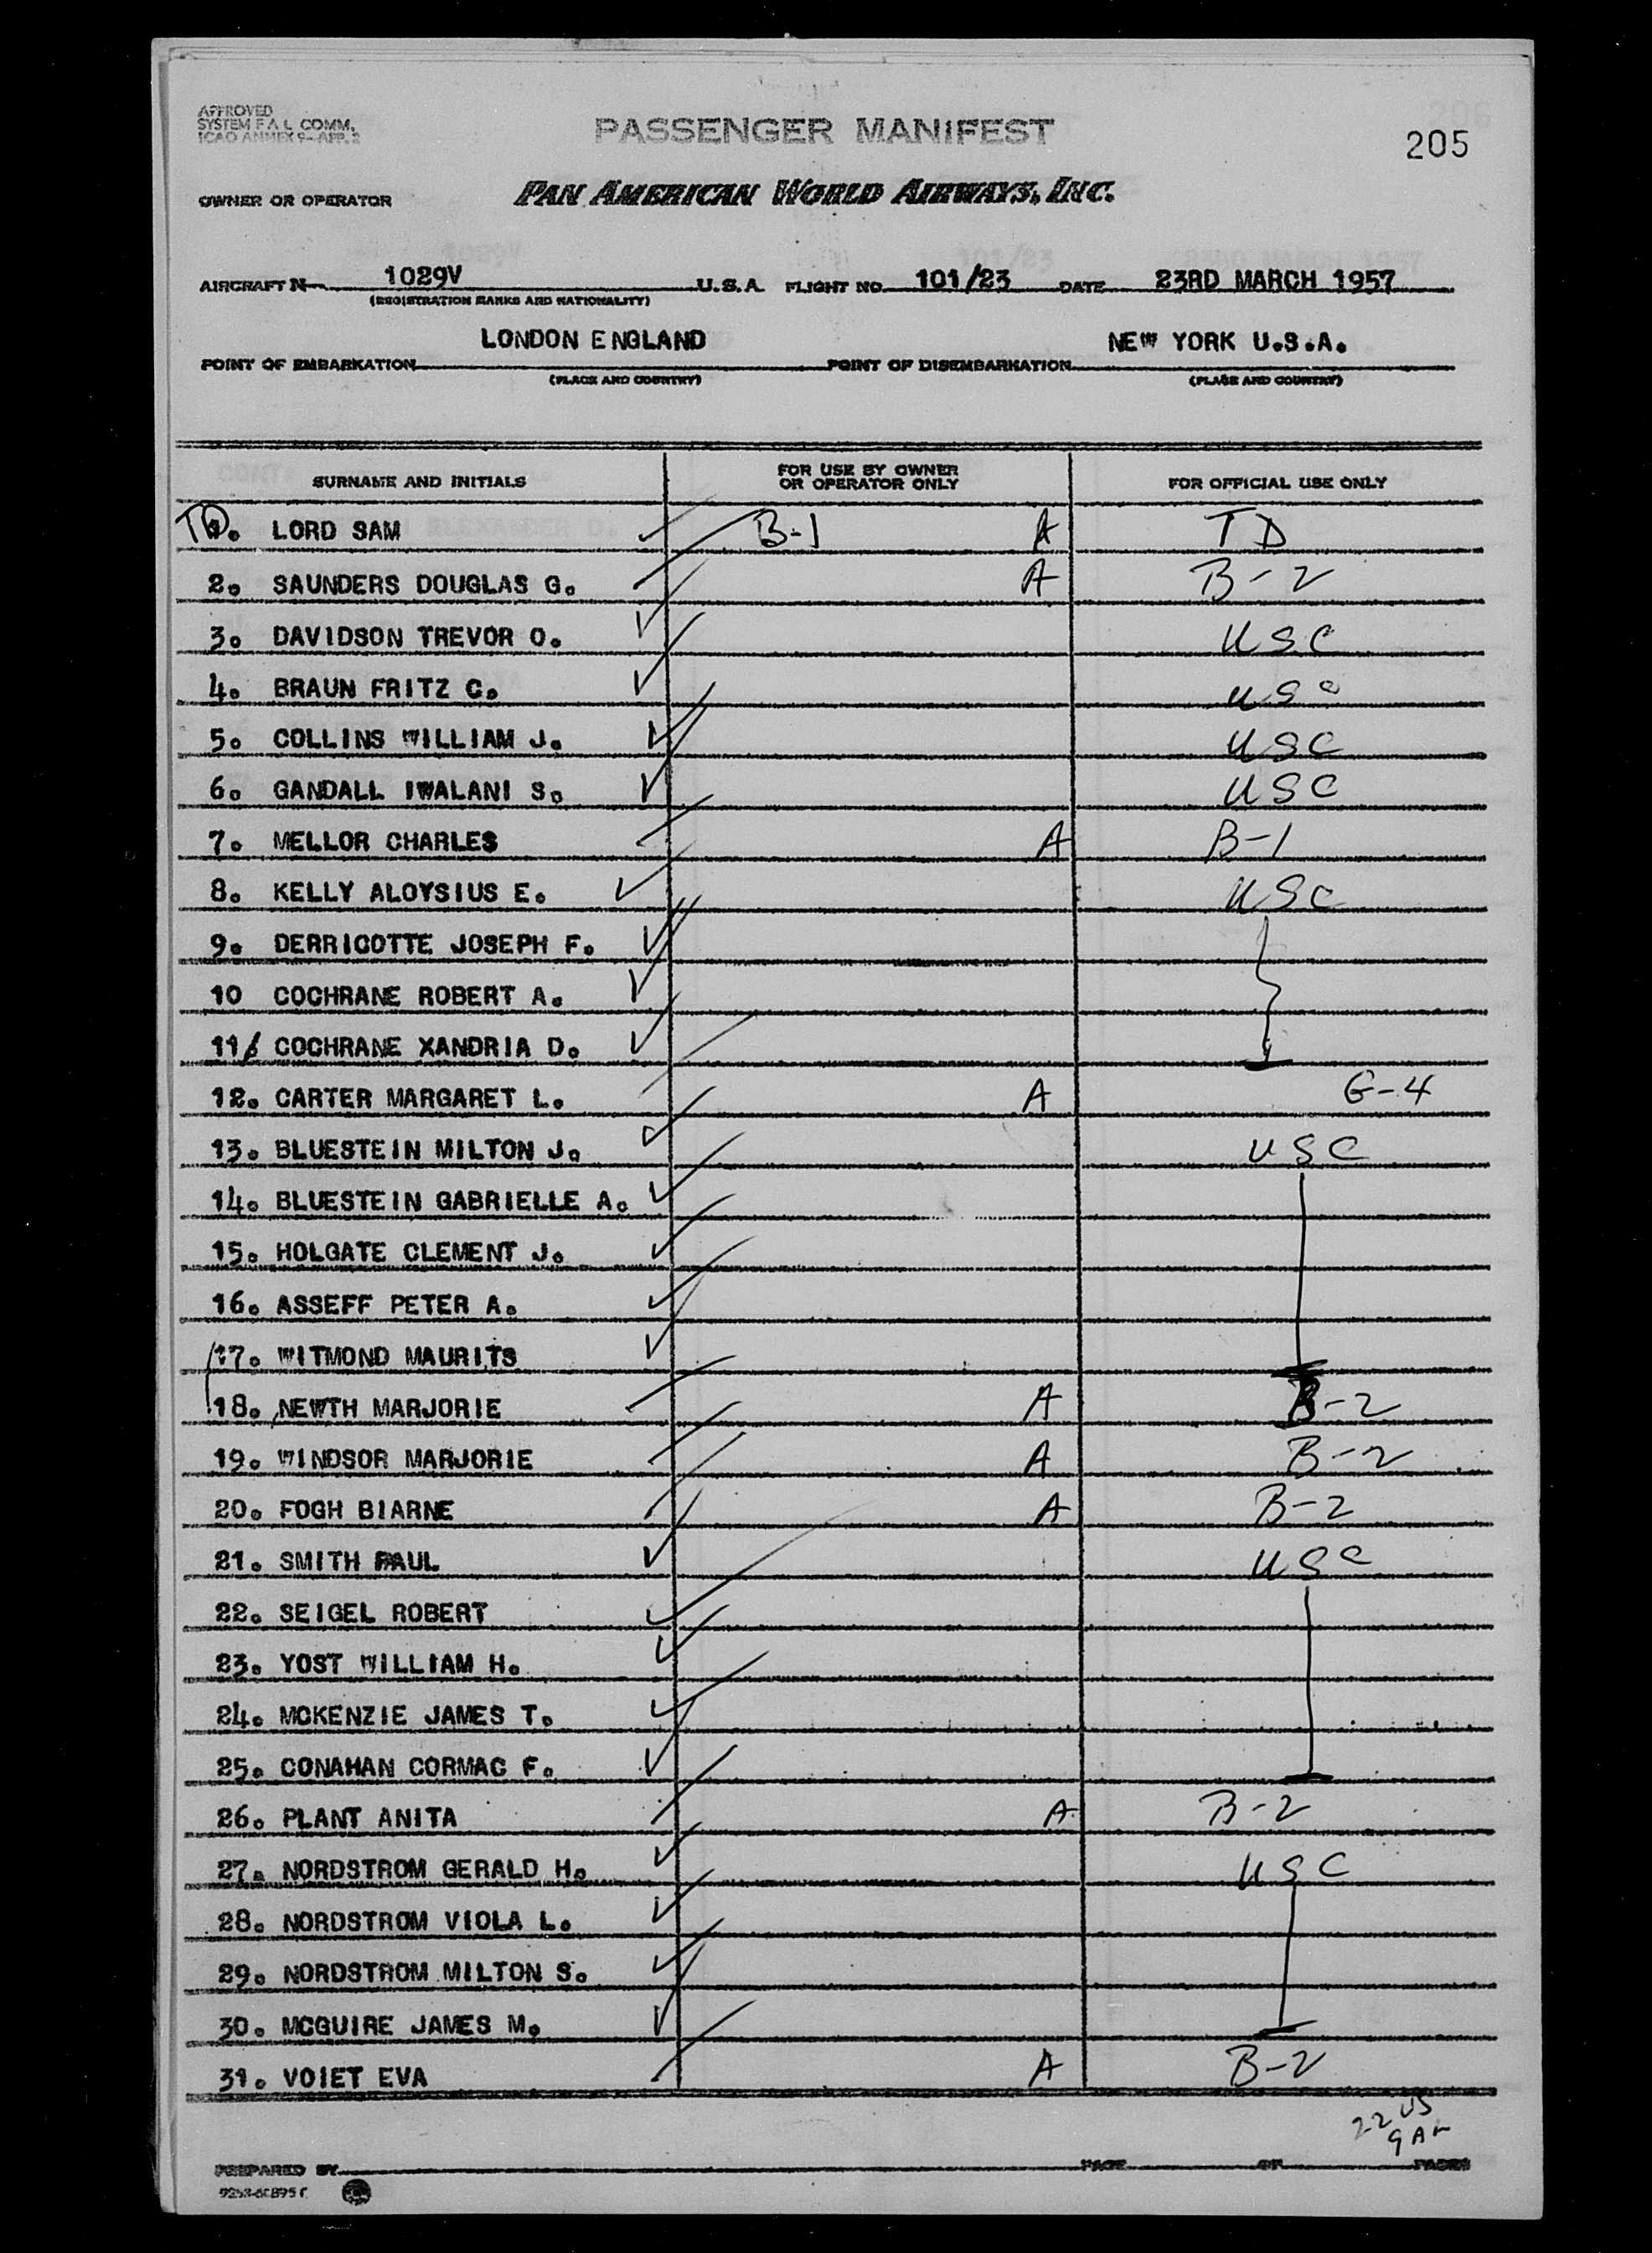 APPROVED
SYSTEM F A L COMM.
ICAO ANNEX 9-APP. 2
PASSENGER MANIFEST
205
OWNER OR OPERATOR PAN AMERICAN WORLD AIRWAYS, INC.
AIRCRAFT N 1029V U.S.A. FLIGHT NO. 101/23 DATE 23RD MARCH 1957
(REGISTRATION MARKS AND NATIONALITY)
LONDON ENGLAND NEW YORK U.S.A.
POINT OF EMBARKATION POINT OF DISEMBARKATION
(PLACE AND COUNTRY) (PLACE AND COUNTRY)
SURNAME AND INITIALS FOR USE BY OWNER OR OPERATOR ONLY FOR OFFICIAL USE ONLY
TD. LORD SAM B-1 A TD
2. SAUNDERS DOUGLAS G. A B-2
3. DAVIDSON TREVOR O. USC
4. BRAUN FRITZ C. USC
5. COLLINS WILLIAM J. USC
6. GANDALL IWALANI S. USC
7. MELLOR CHARLES A B-1
8. KELLY ALOYSIUS E. USC
9. DERRICOTTE JOSEPH F.
10 COCHRANE ROBERT A.
11. COCHRANE XANDRIA D.
12. CARTER MARGARET L. A G-4
13. BLUESTEIN MILTON J. USC
14. BLUESTEIN GABRIELLE A.
15. HOLGATE CLEMENT J.
16. ASSEFF PETER A.
17. WITMOND MAURITS
18. NEWTH MARJORIE A B-2
19. WINDSOR MARJORIE A B-2
20. FOGH BIARNE A B-2
21. SMITH PAUL USC
22. SEIGEL ROBERT
23. YOST WILLIAM H.
24. MCKENZIE JAMES T.
25. CONAHAN CORMAC F.
26. PLANT ANITA A B-2
27. NORDSTROM GERALD H. USC
28. NORDSTROM VIOLA L.
29. NORDSTROM MILTON S.
30. MCGUIRE JAMES M.
31. VOIET EVA A B-2
22 US
9 A
PREPARED BY PAGE OF PAGES